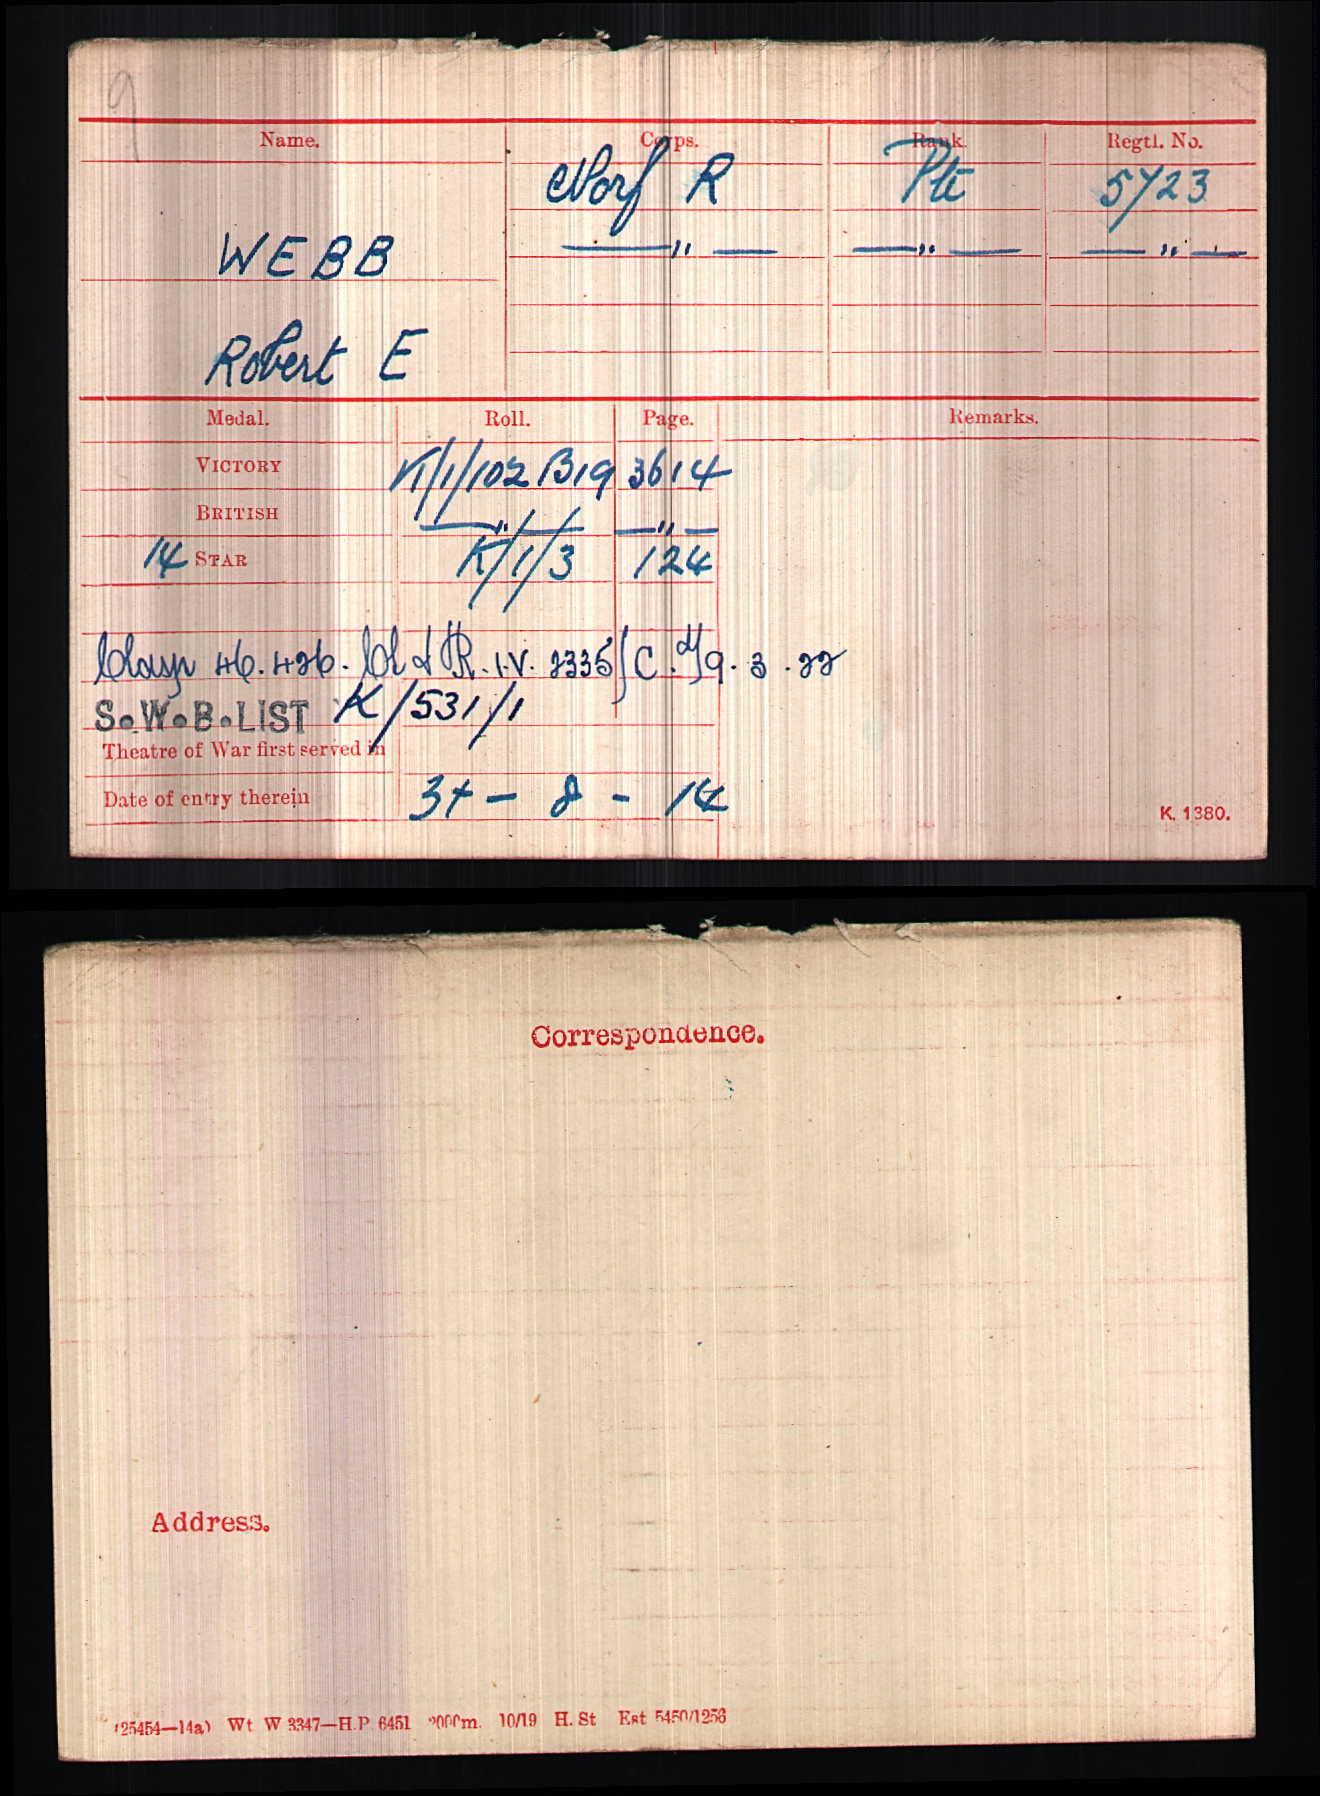 9
Name. Corps. Rank. Regtl. No.
Norf R Pte 5723
WEBB —— " —— —— " —— —— " ——
Robert E
Medal. Roll. Page. Remarks.
VICTORY K/1/102 B19 3614
BRITISH —— " —— —— " ——
14 STAR K/1/3 124
Clasp 46.426. I.V. 2335 9.3.22
S.W.B. LIST K/531/1
Theatre of War first served in
Date of entry therein - 8 - 14
K. 1380.
Correspondence.
Address.
(25454—14a) Wt W 3347—H.P. 6451 10/19 H. St Est 5450/1256